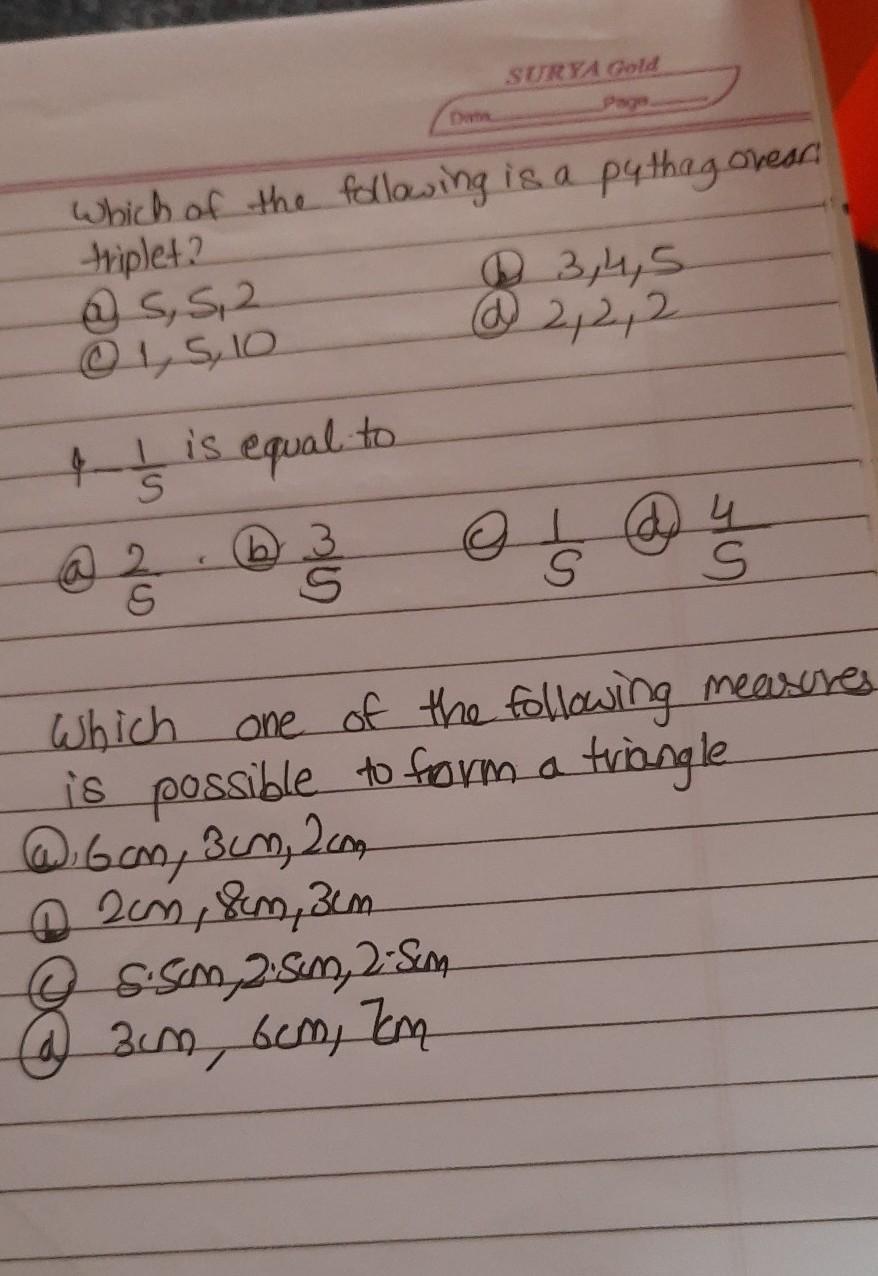 SURYA Gold
Date Page
Which of the following is a pythagorean
triplet?
(a) 5,5,2 (b) 3,4,5
(c) 1,5,10 (d) 2,2,2
- 1/5 is equal to
(a) 2/5 . (b) 3/5 (c) 1/5 (d) 4/5
Which one of the following measures
is possible to form a triangle
(a). 6cm, 3cm, 2cm
(b) 2cm, 8cm, 3cm
(c) 5.5cm, 2.5cm, 2.5cm
(d) 3cm, 6cm, 7cm